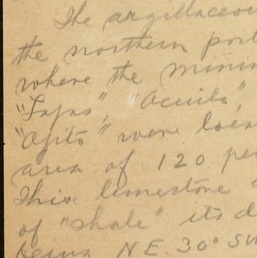 The argillaceou
the northern port
where the minin
"Tapas", "Acuila",
"Ajito" were loca
area of 120 per
This limestone
of "shale" its d
being N.E. 30° SW